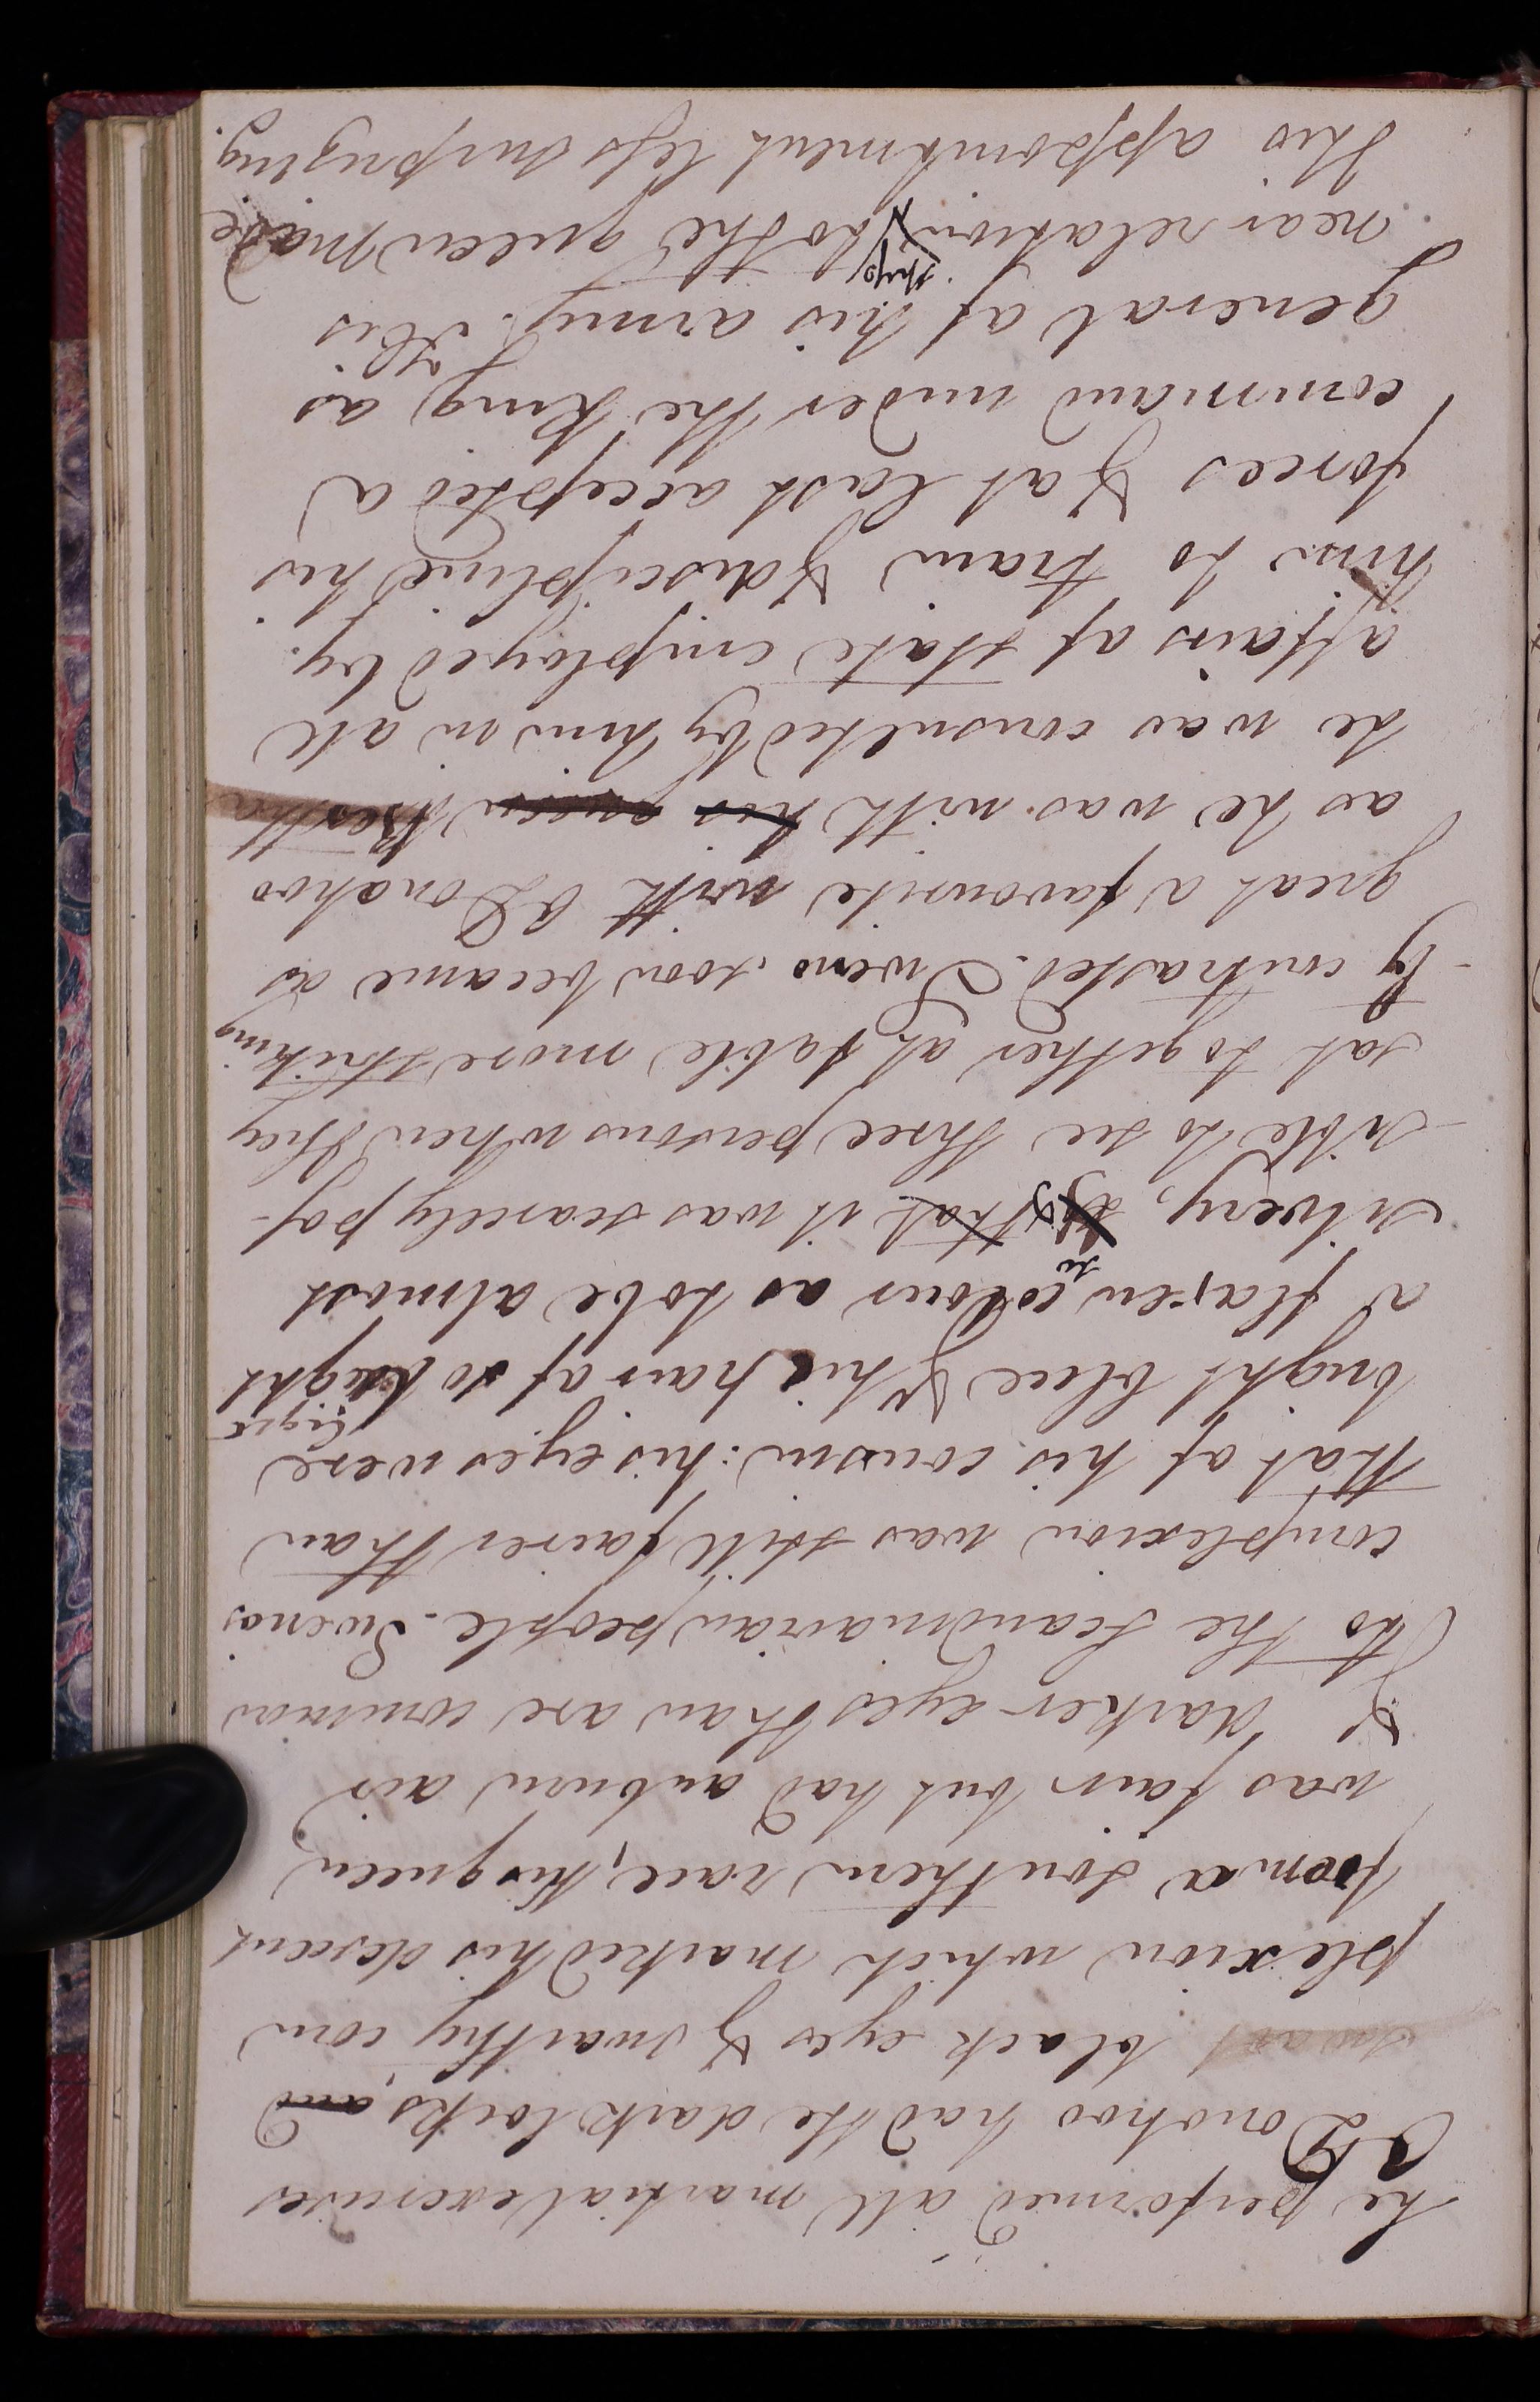 he performed all martial exercises
O Donohoo had the dark locks, and
black eyes & swarthy com
plexion which marked his descent
from a southern race, his queen
was fair but had auburn air
& darker eyes than are common
to the Scandinavian people. Swenos
complexion was still fairer than
that of his cousin: his eyes were
light
bright blue & his hair of so bright
a flaxen colour as to be almost
so
silvery, that it was scarcely pos-
-sible to see three persons when they
sat together at table more striking
-ly contrasted. Sweno soon became as
great a favourite with O Donahoo
as he was with his queen Bertha
he was consulted by him in all
affairs of state employed by
him to train & discipline his
forces & at last accepted a
command under the King, as
general of his army. His
ship
near relation to the queen made
this appointment less surprizing.